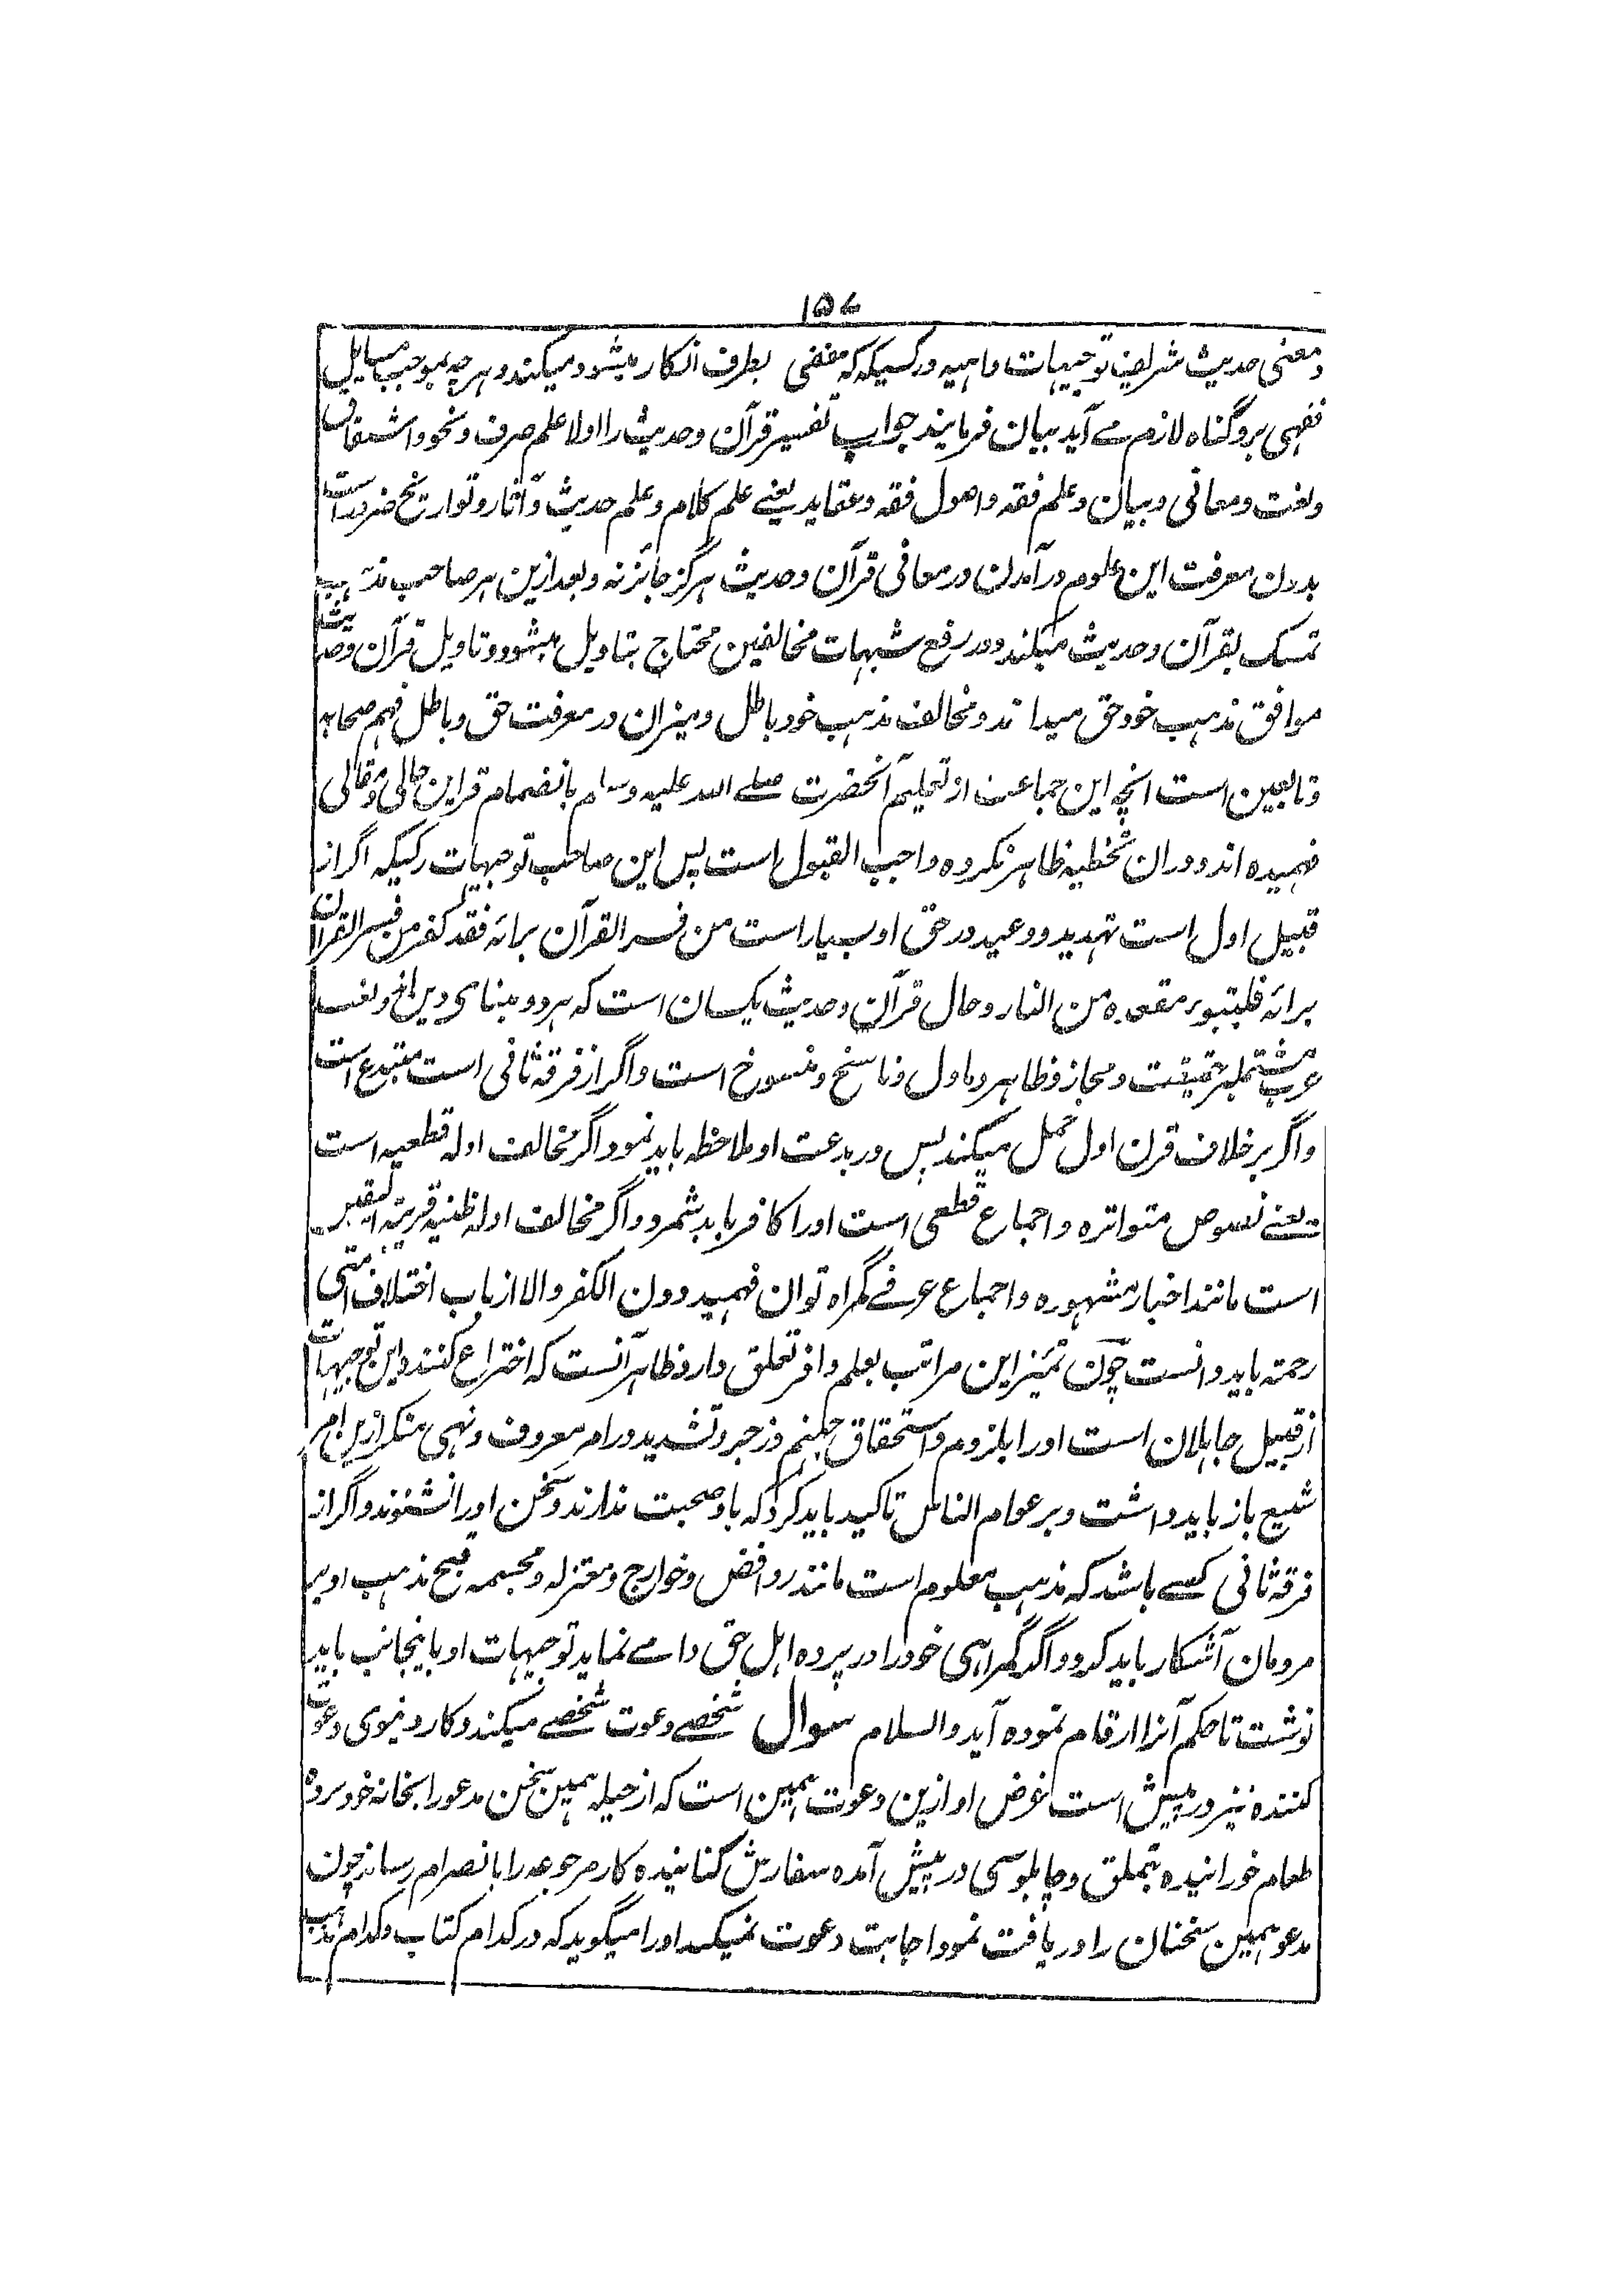 ۱۵۷
ومعنی حدیث شریف توجیهات واهیه در رکیکه که مفضی بطرف انکار میشود میکند و هرچه بموجب مسایل
فقهی بروگناه لازم مے آید بیان فرمایند جواب تفسیر قرآن وحدیث را اولا علم صرف ونحو واشتقاق
ولغت ومعانی وبیان وعلم فقه واصول فقه وعقاید یعنے علم کلام وعلم حدیث وآثار وتواریخ ضرور است
بدون معرفت این علوم درآمدن درمعانی قرآن وحدیث هرگز جائز نه وبعد ازین هر صاحب مذهب
تمسک بقرآن وحدیث میکند ودر رفع شبهات مخالفین محتاج بتاویل میشود وتاویل قرآن وحدیث
موافق مذهب خود حق میداند ومخالف مذهب خود باطل ومیزان در معرفت حق وباطل فهم صحابه
وتابعین است انچه این جماعت از تعلیم آنحضرت صلے الله علیه وسلم بانضمام قراین حالی ومقالی
فهمیده اند ودران تخطیه ظاهر نکرده واجب القبول است پس این صاحب توجیهات رکیکه اگر از
قبیل اول است تهدید ووعید درحق او بسیار است من فسر القرآن برائه فقد کفر من فسر القرآن
برائه فلیتبوء مقعده من النار وحال قرآن وحدیث یکسان است که هردو بنای دین اند ولغت
عرب مشتمل بر حقیقت ومجاز وظاهر وماول وناسخ ومنسوخ است واگر از فرقه ثانی است مبتدع است
واگر برخلاف قرن اول عمل میکند پس در بدعت او ملاحظه باید نمود اگر مخالف ادله قطعیه است
یعنے نصوص متواتره واجماع قطعی است اورا کافر باید شمرد واگر مخالف ادله ظنیه قریبة الیقین
است مانند اخبار مشهوره واجماع عرفے گمراه توان فهمید دون الکفر والا از باب اختلاف امتی
رحمة باید دانست چون تمیز این مراتب بعلم وافر تعلق دارد ظاهر آنست که اختراع کننده این توجیهات
از قبیل جاهلان است اورا بلزوم واستحقاق جهنم وزجر وتشدید در امر معروف ونهی منکر ازین امر
شنیع باز باید داشت وبر عوام الناس تاکید باید کرد که با او صحبت ندارند وسخن اورا نشنوند واگر از
فرقه ثانی کسے باشد که مذهب معلوم است مانند روافض وخوارج ومعتزله ومجسمه قبح مذهب او بر
مردمان آشکار باید کرد واگر گمراهی خود را در پرده اهل حق وا مے نماید توجیهات او باینجانب باید
نوشت تا حکم آنرا ارقام نموده آید والسلام سوال شخصے دعوت شخصے میکند وکار دنیوی دعوت
کننده نیز در پیش است غرض او ازین دعوت همین است که از حیله همین سخن مدعو را بخانه خود برده
طعام خورانیده بتملق وچاپلوسی در پیش آمده سفارش کنانیده کار مرجوعه را بانصرام رساند چون
مدعو همین سخنان را دریافت نمود اجابت دعوت نمیکند اورا میگوید که در کدام کتاب وکدام مذهب